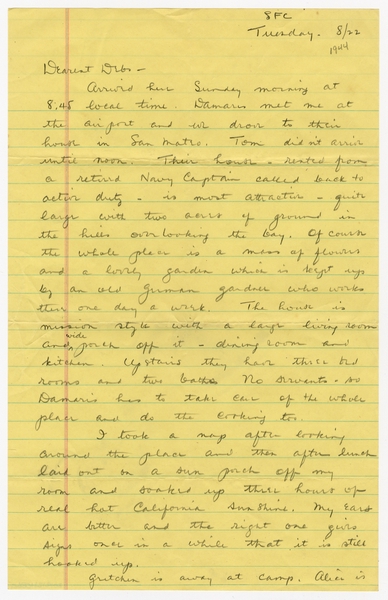 SFC
Tuesday. 8/22
1944
Dearest Debs -
Arrived here Sunday morning at
8:45 local time. Damaris met me at
the airport and we drove to their
house in San Mateo. Tom didn't arrive
until noon. Their house - rented from
a retired Navy Captain called back to
active duty - is most attractive - quite
large with two acres of ground in
the hills overlooking the bay. Of course
the whole place is a mass of flowers
and a lovely garden which is kept up
by an old German gardner who works
there one day a week. The house is
mission style with a large living room
wide
and porch off it - dining room and
kitchen. Upstairs they have three bed
rooms and two baths. No servants - so
Damaris has to take care of the whole
place and do the cooking too.
I took a nap after looking
around the place and then after lunch
laid out on a sun porch off my
room and soaked up three hours of
real hot California sunshine. My ears
are better and the right one gives
signs once in a while that it is still
hooked up.
Gretchen is away at camp. Alice is